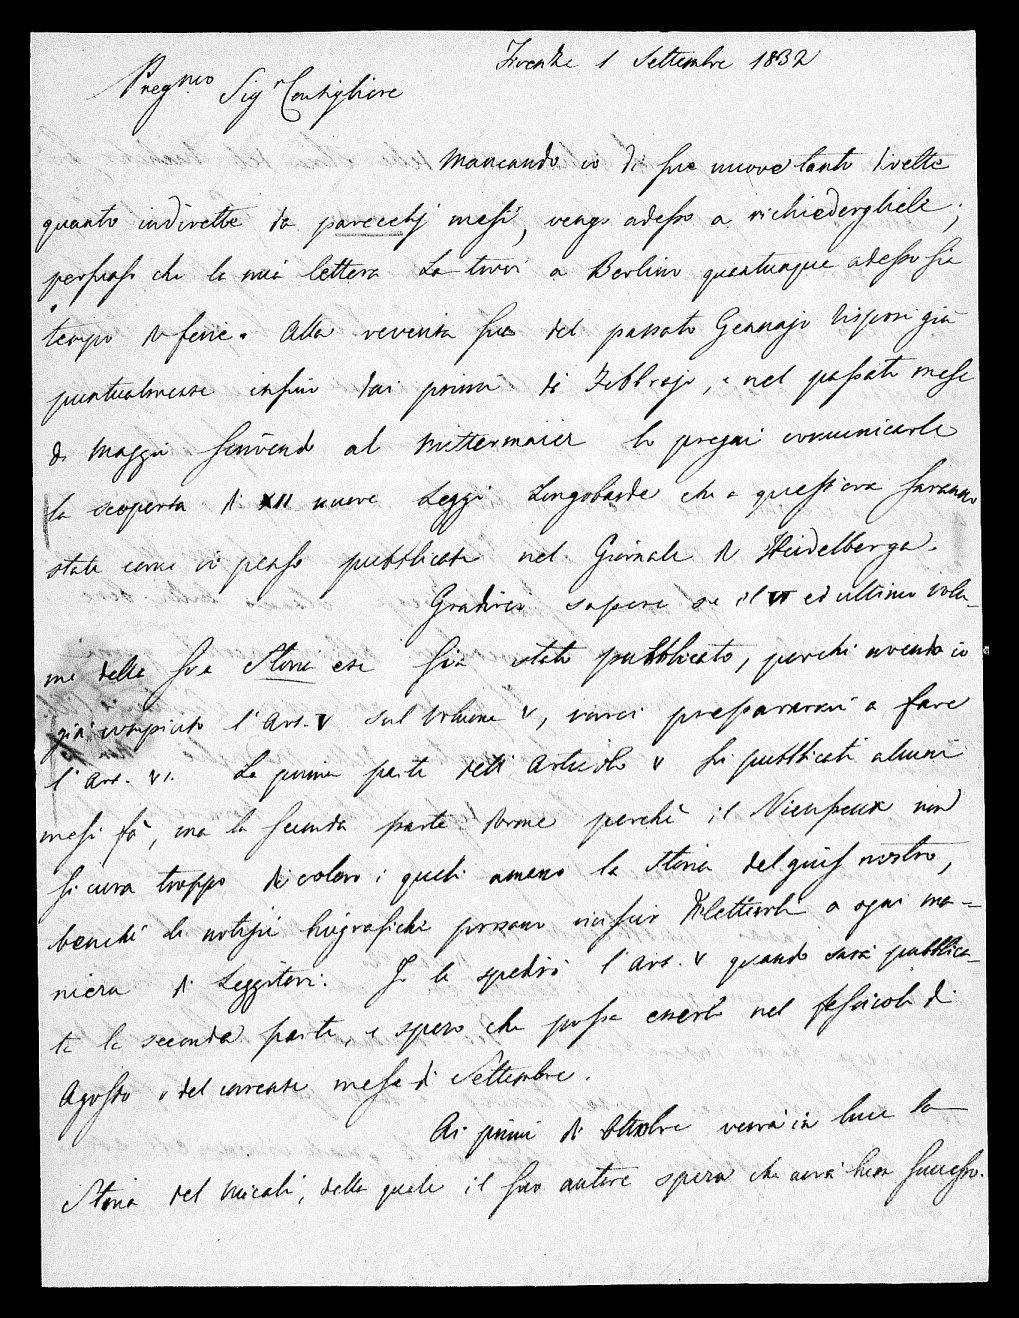 Firenze 1 Settembre 1832
Pregmo Sigr Consigliere
Mancando io di sue nuove tanto dirette
quanto indirette da parecchj mesi, vengo adesso a richiedergliele;
persuaso che la mia lettera La trovi a Berlino quantunque adesso sia
tempo di ferie. Alla reverita sua del passato Gennajo risposi già
puntualmente infino dai primi di Febbrajo, e nel passato mese
di Maggio scrivendo al Mittermaier lo pregai comunicarle
la scoperta di XII nuove Leggi Longobarde che a quest'ora saranno
state come io penso pubblicate nel Giornale di Heidelberga.
Gradirei sapere se il VI ed ultimo volu-
me della sua Storia era sia stato pubblicato, perchè avendo io
già compiuto l'Art. V sul Volume V, vorrei prepararmi a fare
l'Art. VI. La prima parte dell'Articolo V fu pubblicata alcuni
mesi fà, ma la seconda parte dorme perchè il Vieusseux non
si cura troppo di coloro i quali amano la Storia del gius nostro,
benchè le notizie biografiche possano riuscir dilettevoli a ogni ma-
niera di Leggitori. Io le spedirò l'Art. V quando sarà pubblica-
ta la seconda parte, e spero che possa esserlo nel fascicolo di
Agosto o del corrente mese di Settembre.
Ai primi di Ottobre verrà in luce la
Storia del Micali, della quale il suo autore spera che avrà buon successo.